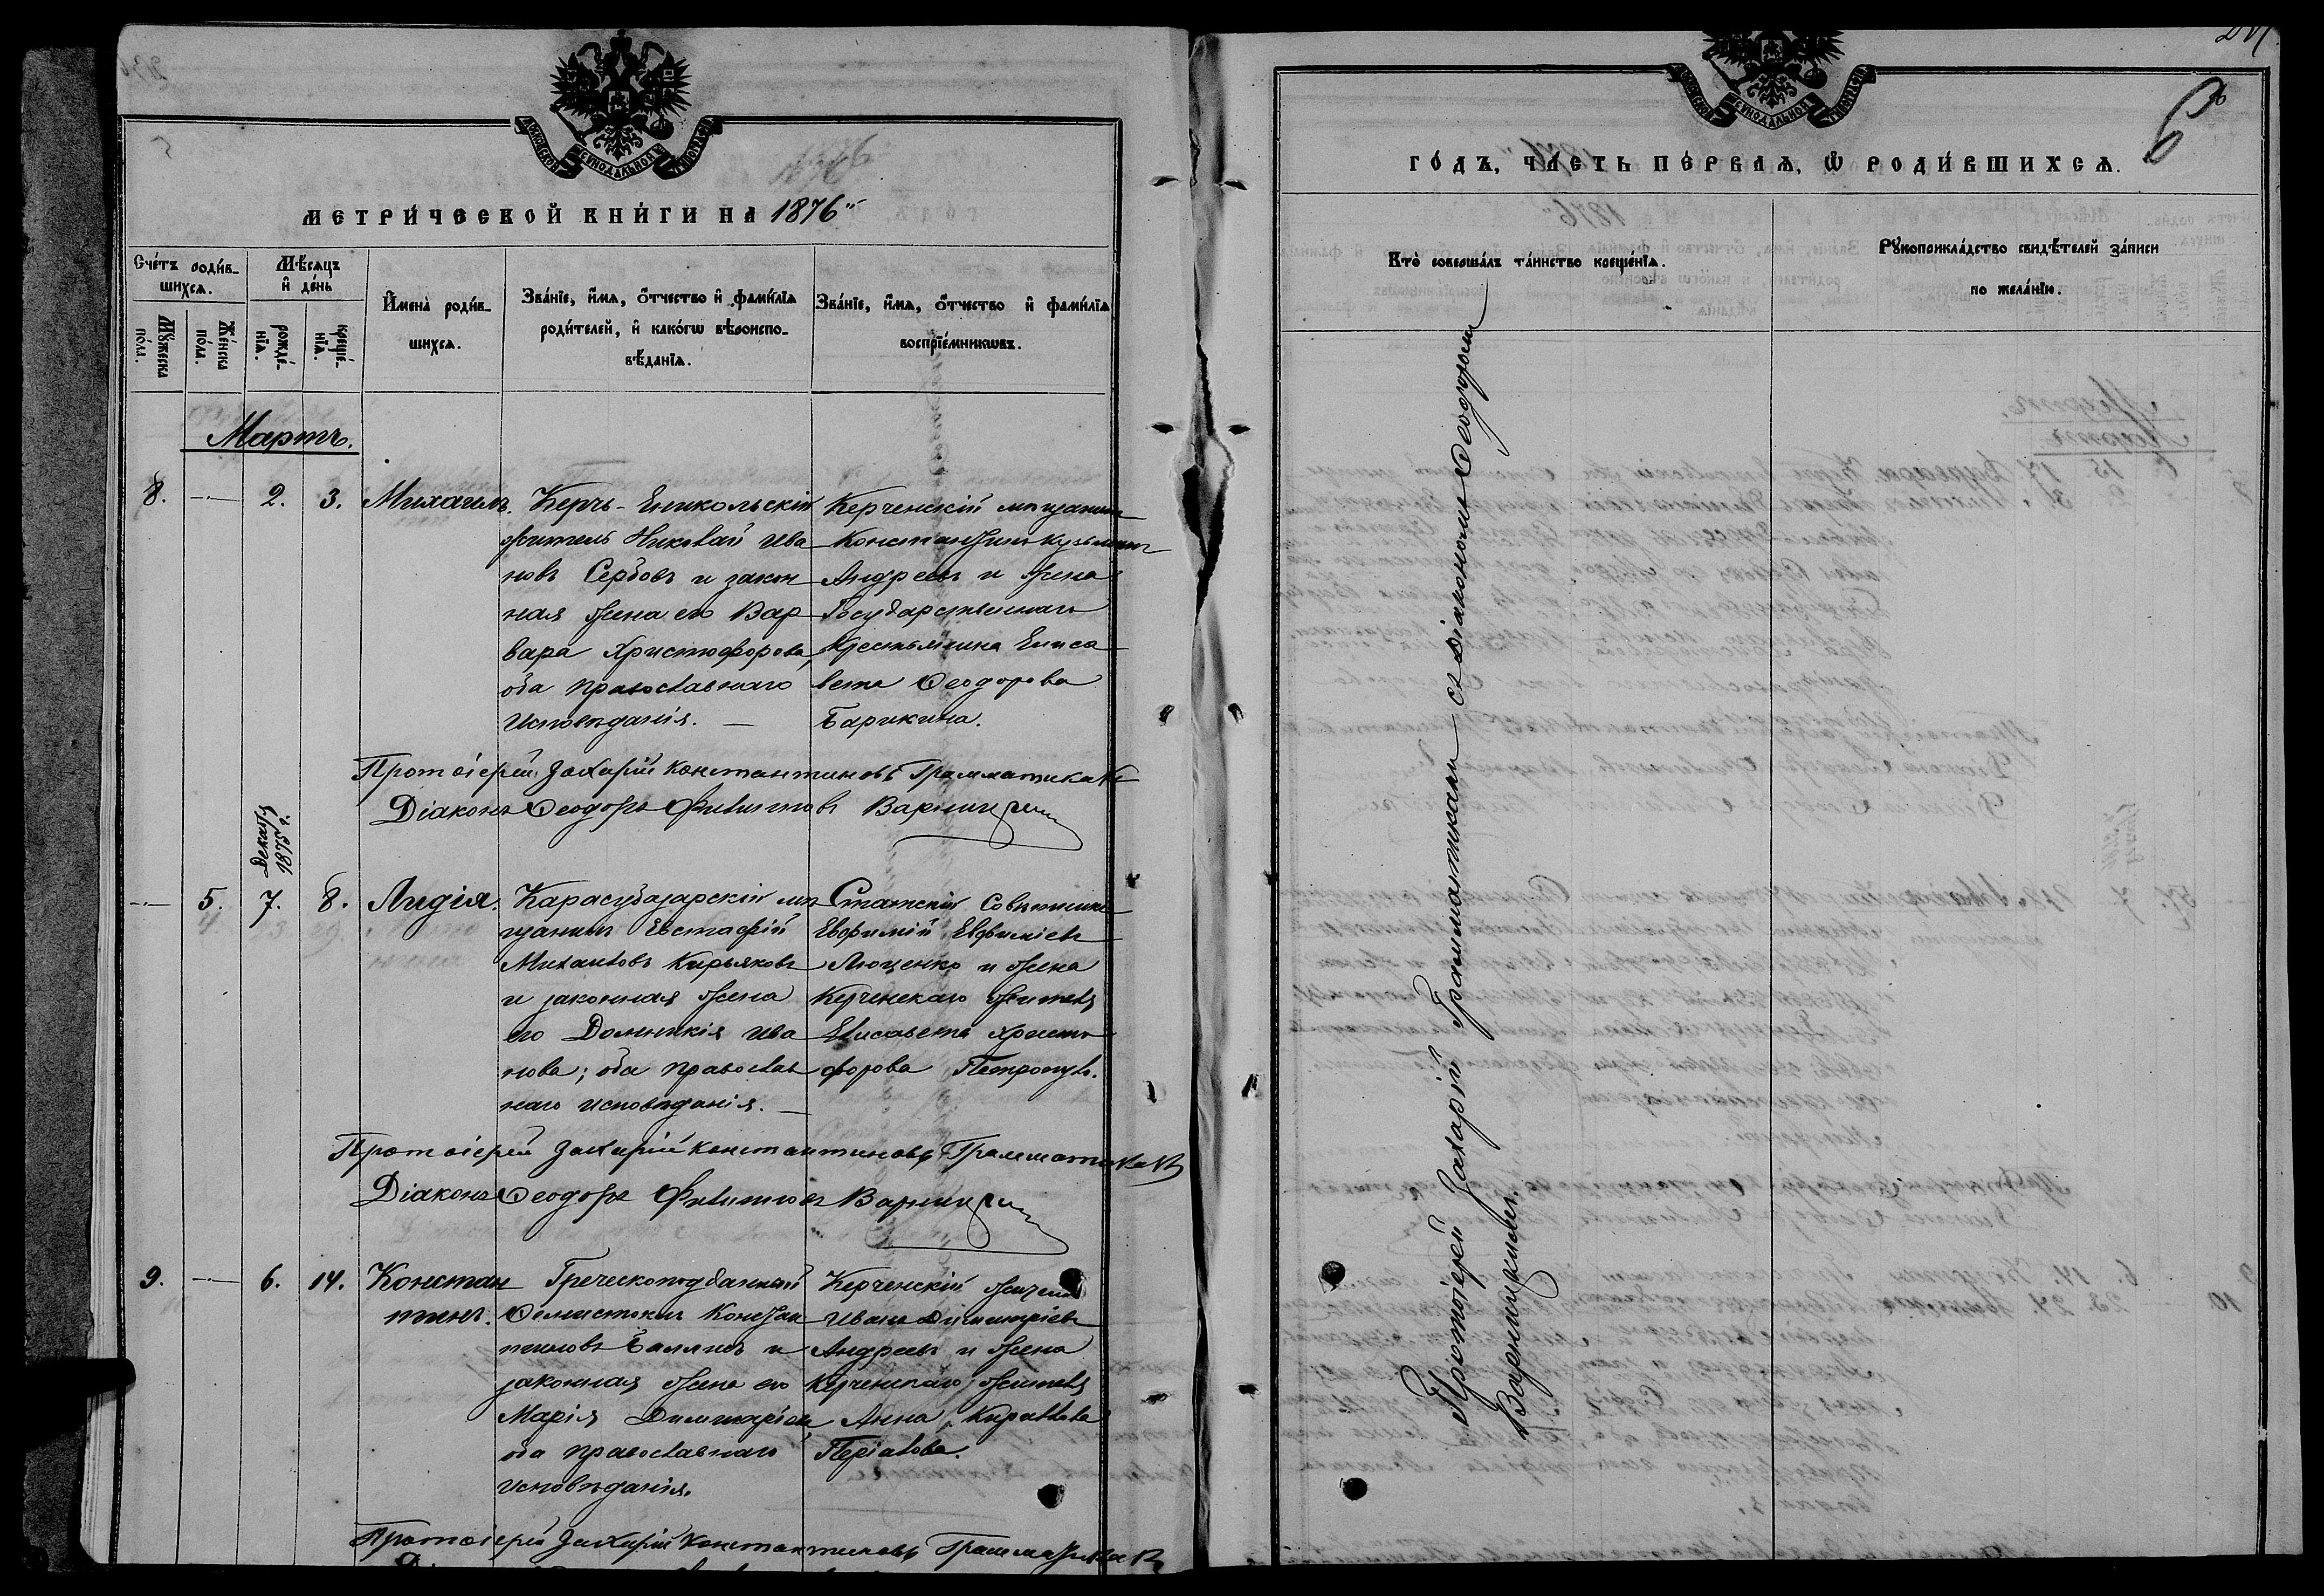 МОСКОВСКОЙ СѴНОДАЛЬНОЙ ТИПОГРАФІИ
1876
МЕТРИ́ЧЕСКОЙ КНИ́ГИ НА 1876
Сче́тъ роди́вшихсѧ.
Мꙋ́жеска по́ла.
Же́нска по́ла.
Мѣ́сѧцъ и҆ де́нь
рожде́нїѧ.
креще́нїѧ.
И҆мена̀ роди́вшихсѧ.
Зва́нїе, и҆́мѧ, ѻ҆́тчество и҆ фами́лїѧ
роди́телей, и҆ како́гѡ вѣроиспо-
вѣ́данїѧ.
Зва́нїе, и҆́мѧ, ѻ҆́тчество и҆ фами́лїѧ
воспрїе́мникѡвъ.
Мартъ.
8. — 2. 3. Михаилъ.
Керчь-Еникольскій
житель Николай Ива
новъ Сербовъ и закон
ная жена его Вар
вара Христофорова,
оба православнаго
Исповѣданія. —
Керченскій мѣщанинъ
Константинъ Кузьминъ
Андреевъ и жена
Государственнаго
Крестьянина Елиса
вета Ѳеодорова
Барикина.
Протоіерей Захарій Константиновъ Грамматикакі
Діаконъ Ѳеодоръ Филипповъ
Декабр 1875 г.
— 5. 7. 8. Лидія.
Карасубазарскій мѣ
щанинъ Евстафій
Михаиловъ Кирьяковъ
и законная жена
его Домникія Ива
нова; оба православ
наго исповѣданія. —
Статскій Совѣтникъ
Евфимій Евфиміевъ
Люценко и жена
Керченскаго жителя
Елисавета Христо
форова Петропуло.
Протоіерей Захарій Константиновъ Грамматикаки
Діаконъ Ѳеодоръ Филипповъ
9. — 6. 14. Констан
тинъ.
Греческоподданный
Ѳемистоклъ Констан
тиновъ и
законная жена его
Марія Димитріева
оба православнаго
исповѣданія.
Керченскій житель
Иванъ Димитріевъ
Андреевъ и жена
Керченскаго жителя
Анна
Протоіерей Захарій Константиновъ Грамматикаки
МОСКОВСКОЙ СѴНОДАЛЬНОЙ ТИПОГРАФІИ
6
ГО́ДЪ, ЧА́СТЬ ПЕ́РВАѦ, Ѡ҆ РОДИ́ВШИХСѦ.
Кто̀ соверша́лъ та́инство креще́нїѧ.
Рꙋкоприкла́дство свидѣ́телей за́писи
по жела́нїю.
Протоіерей Захарій Грамматикаки съ Діакономъ Ѳеодоромъ